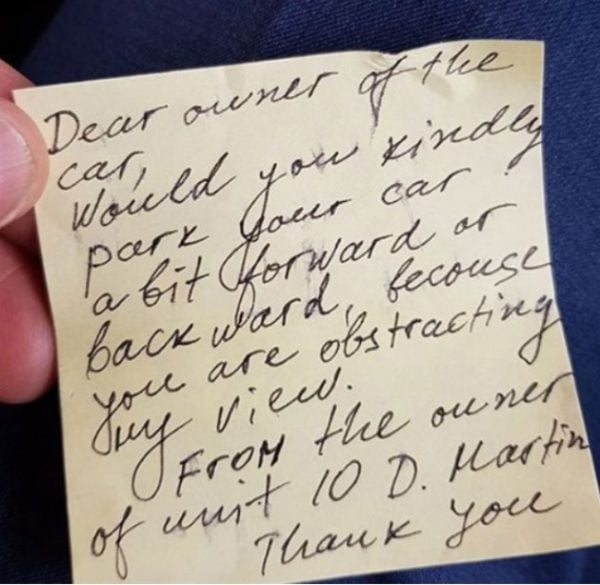 Dear owner of the
car,
Would you kindly
park your car
a bit forward or
backward, becouse
you are obstracting
my view.
From the owner
of unit 10 D. Martin
Thank you